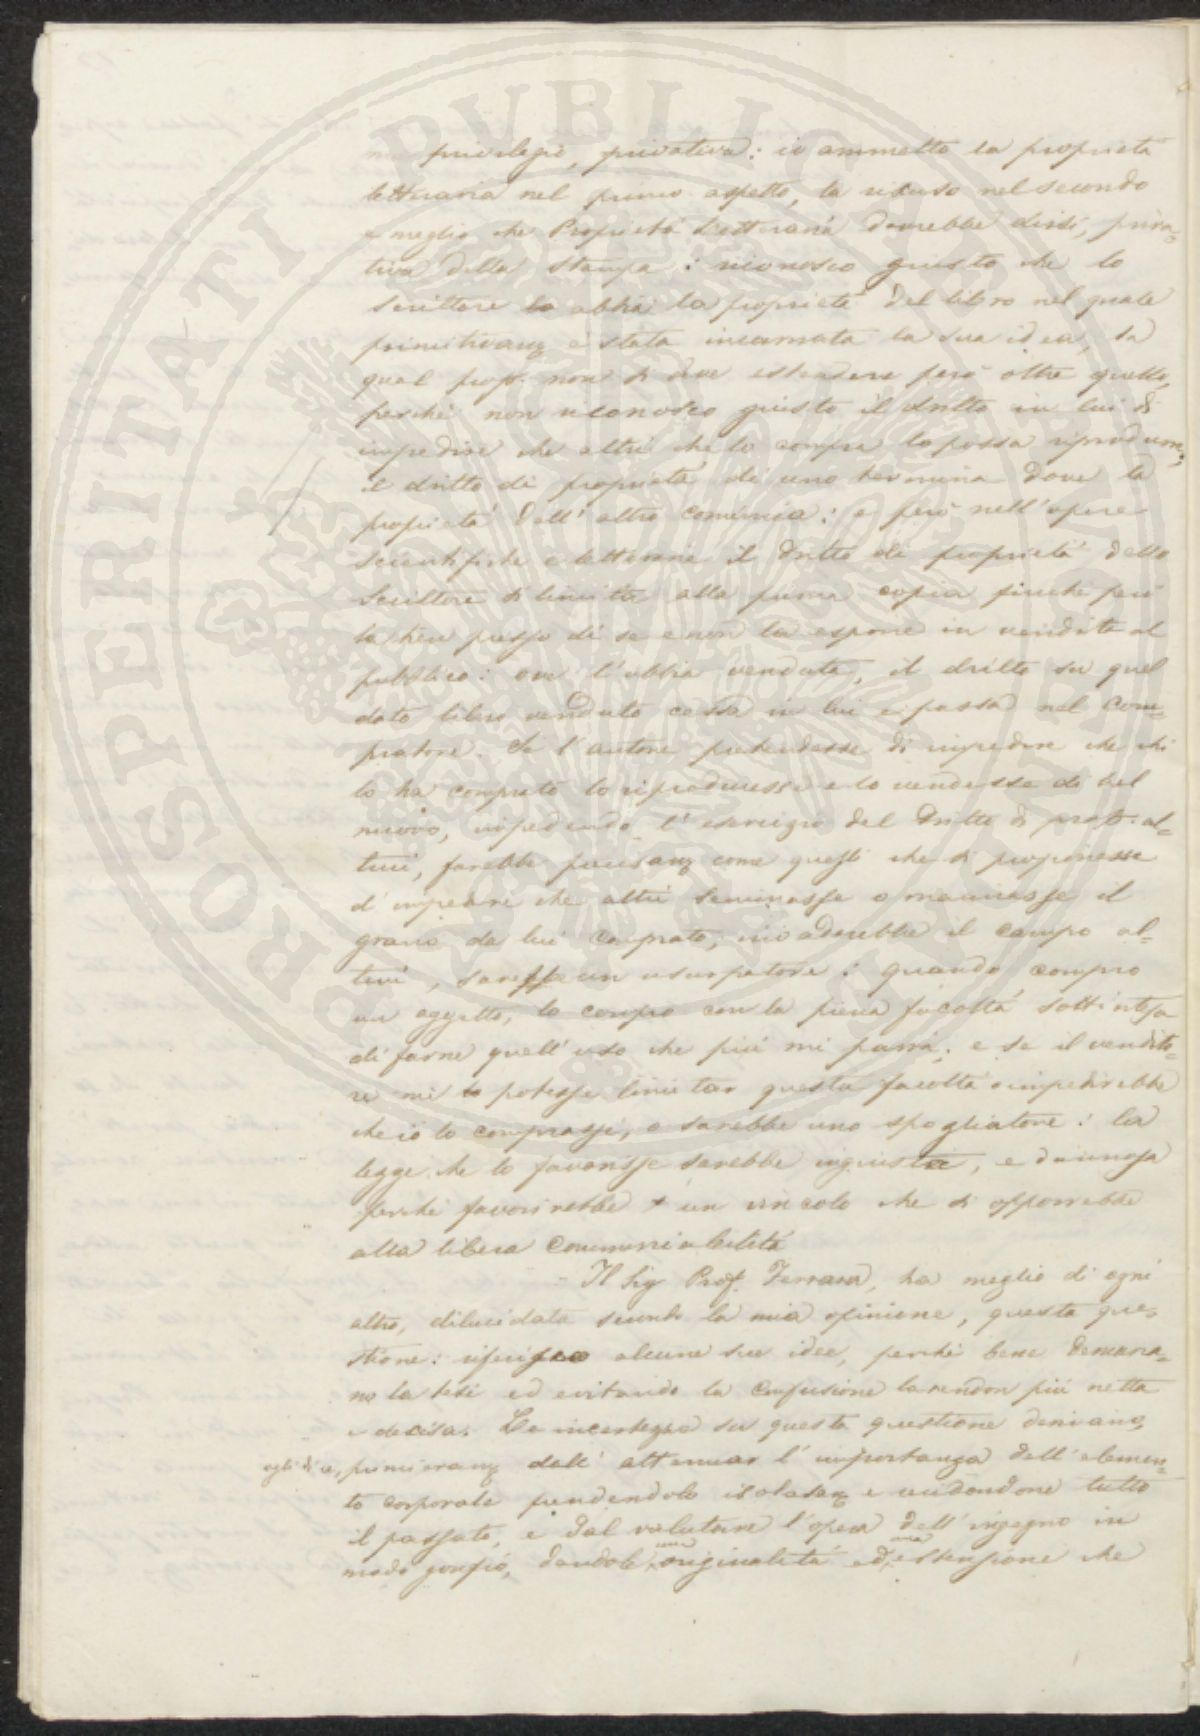 privilegio, privativa: io ammetto la proprietà
letteraria nel primo aspetto, la ricuso nel secondo
e meglio che Proprietà Letteraria dovrebbe dirsi, priva-
tiva della stampa: riconosco giusto che lo
scrittore abbia la proprietà del libro nel quale
è stata incarnata la sua idea, la
qual prop. non si deve estendere però oltre quello,
perché non riconosco giusto il dritto in lui di
impedire che altri che lo compra lo possa riprodurre;
il dritto di proprietà di uno termina dove la
proprietà dell'altro comincia: e però nell'opere
scientifiche e letterarie il dritto di proprietà dello
Scrittore si limita alla prima copia finché però
la tien presso di se e non la espone in vendita al
pubblico: ove l'abbia venduta, il dritto su quel
dato libro venduto cessa in lui e passa nel Com-
pratore. Se l'autore pretendesse di impedire che chi
lo ha comprato lo riproducesse e lo vendesse di bel
nuovo, impedendo l'esercizio del Dritto di prop. al-
trui, farebbe come quegli che si proponesse
d'impedire che altri seminasse o macinasse il
grano da lui comprato, invaderebbe il campo al-
trui, sarebbe un usurpatore: quando compro
un oggetto, lo compro con la piena facoltà sottintesa
di farne quell'uso che più mi parrà; e se il vendito-
re mi potesse limitar questa facoltà o impedirebbe
che io lo comprassi, o sarebbe uno spogliatore: la
legge che lo favorisse sarebbe ingiusta, e dannosa
perché favorirebbe un vincolo che si opporrebbe
alla libera commerciabilità
Il Sig Prof. Ferrara, ha meglio di ogni
altro, dilucidata secondo la mia opinione, questa que-
stione: riferisco alcune sue idee, perché bene demarca-
no la tesi ed evitando la confusione la rendon più netta
e decisa. Le incertezze su questa questione derivano,
egli dice, dall'attenuar l'importanza dell'elemen-
to corporale prendendolo e
il passato, e dal valutare l'opera dell'ingegno in
modo gonfio, dandole una originalità ed una estensione che